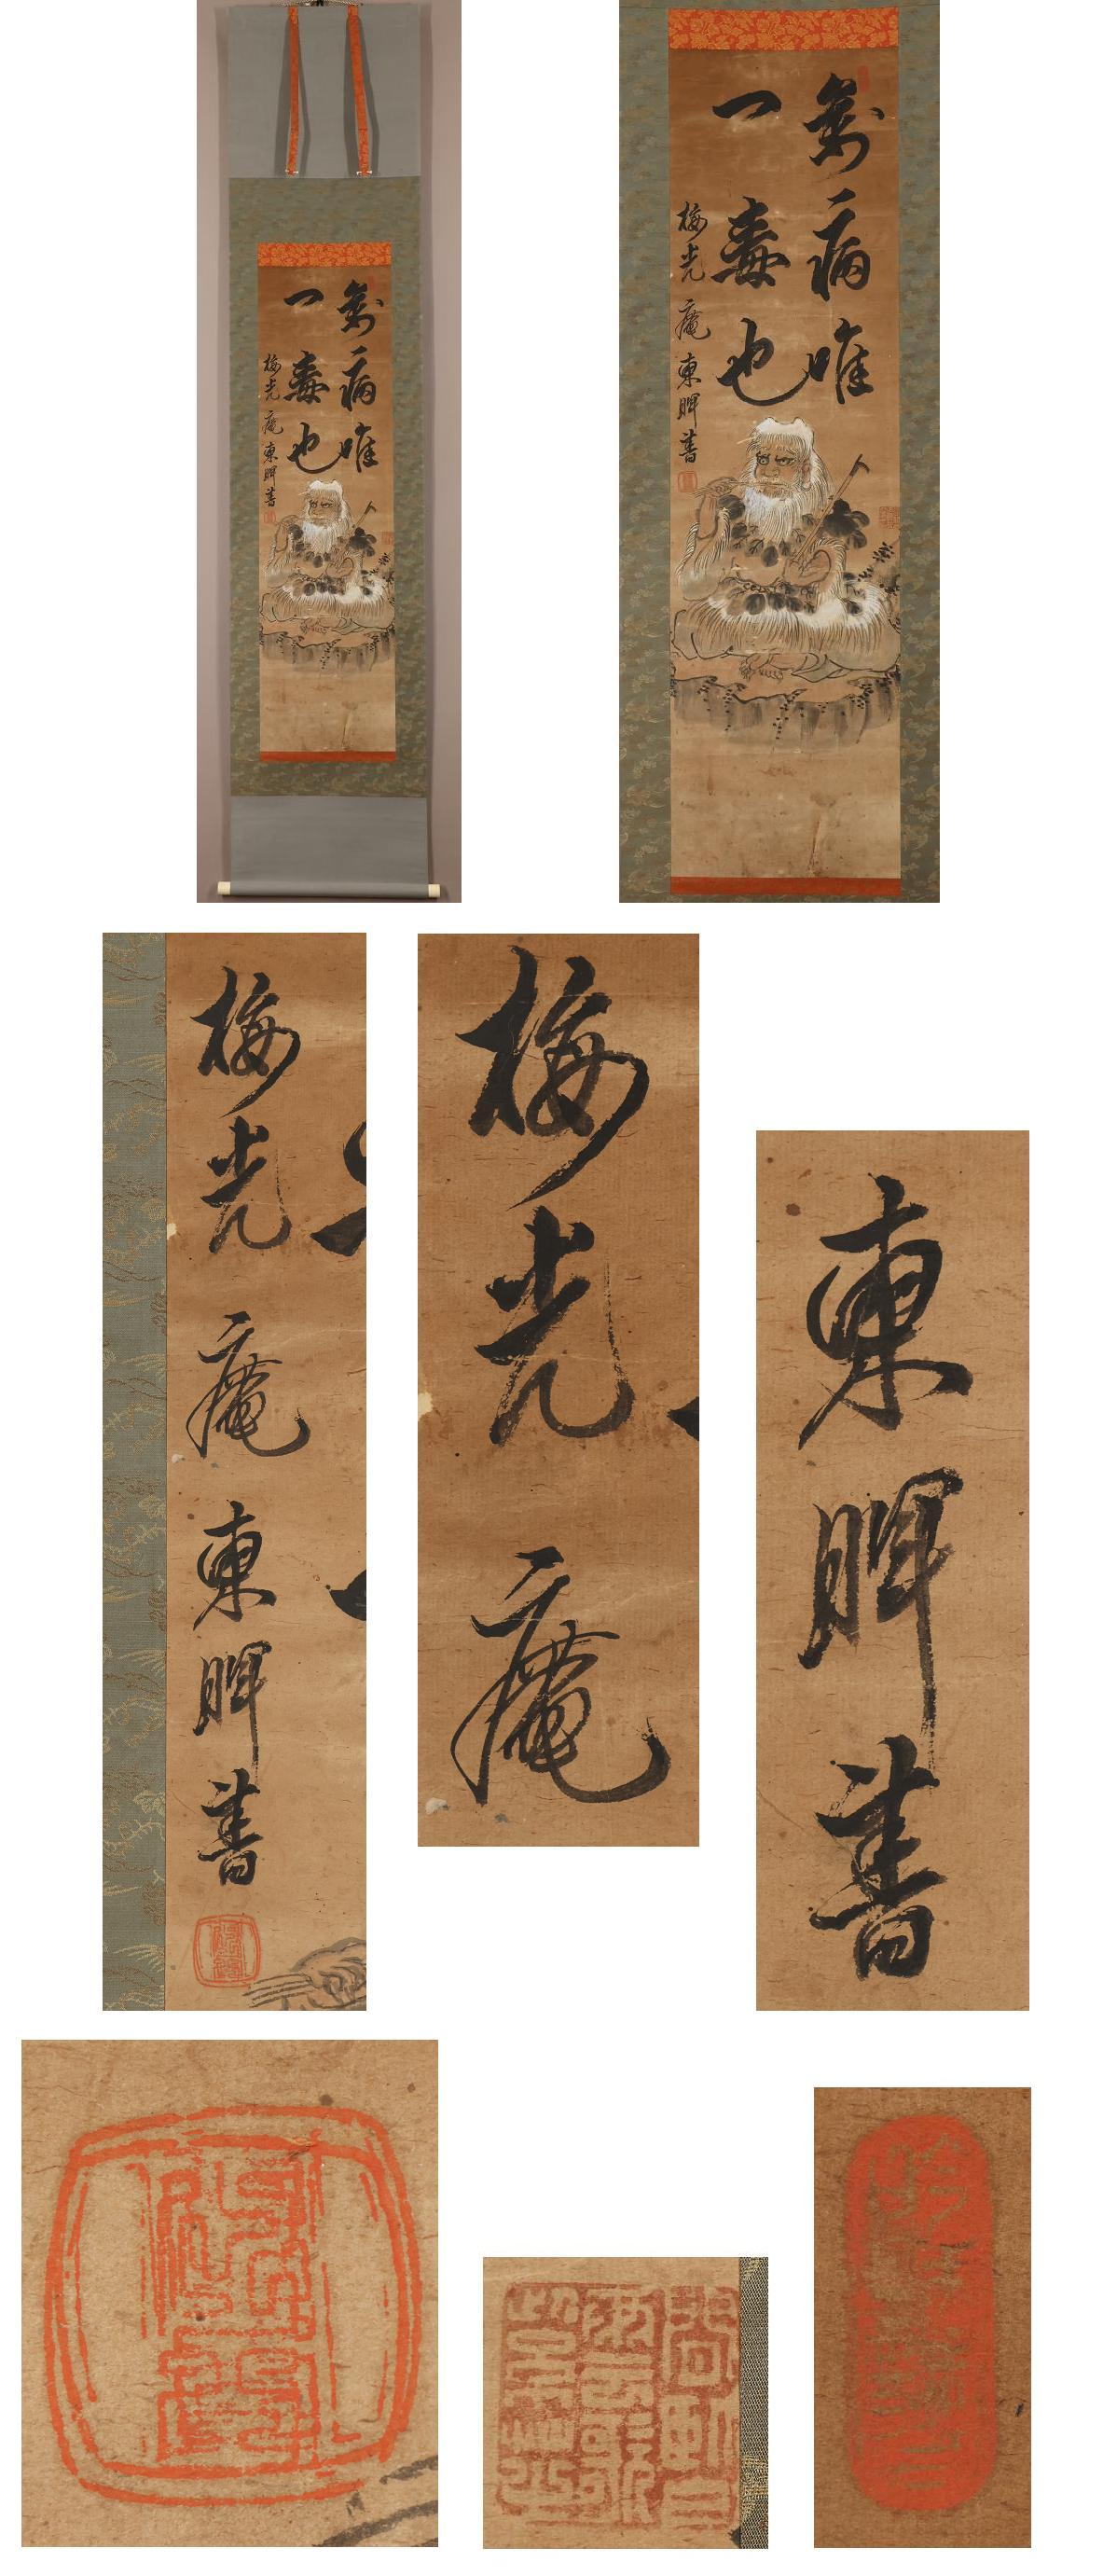 萬病唯
一毒也
梅光庵東書
萬病唯
一毒也
梅光庵東書
梅光庵東書
梅光庵
東書